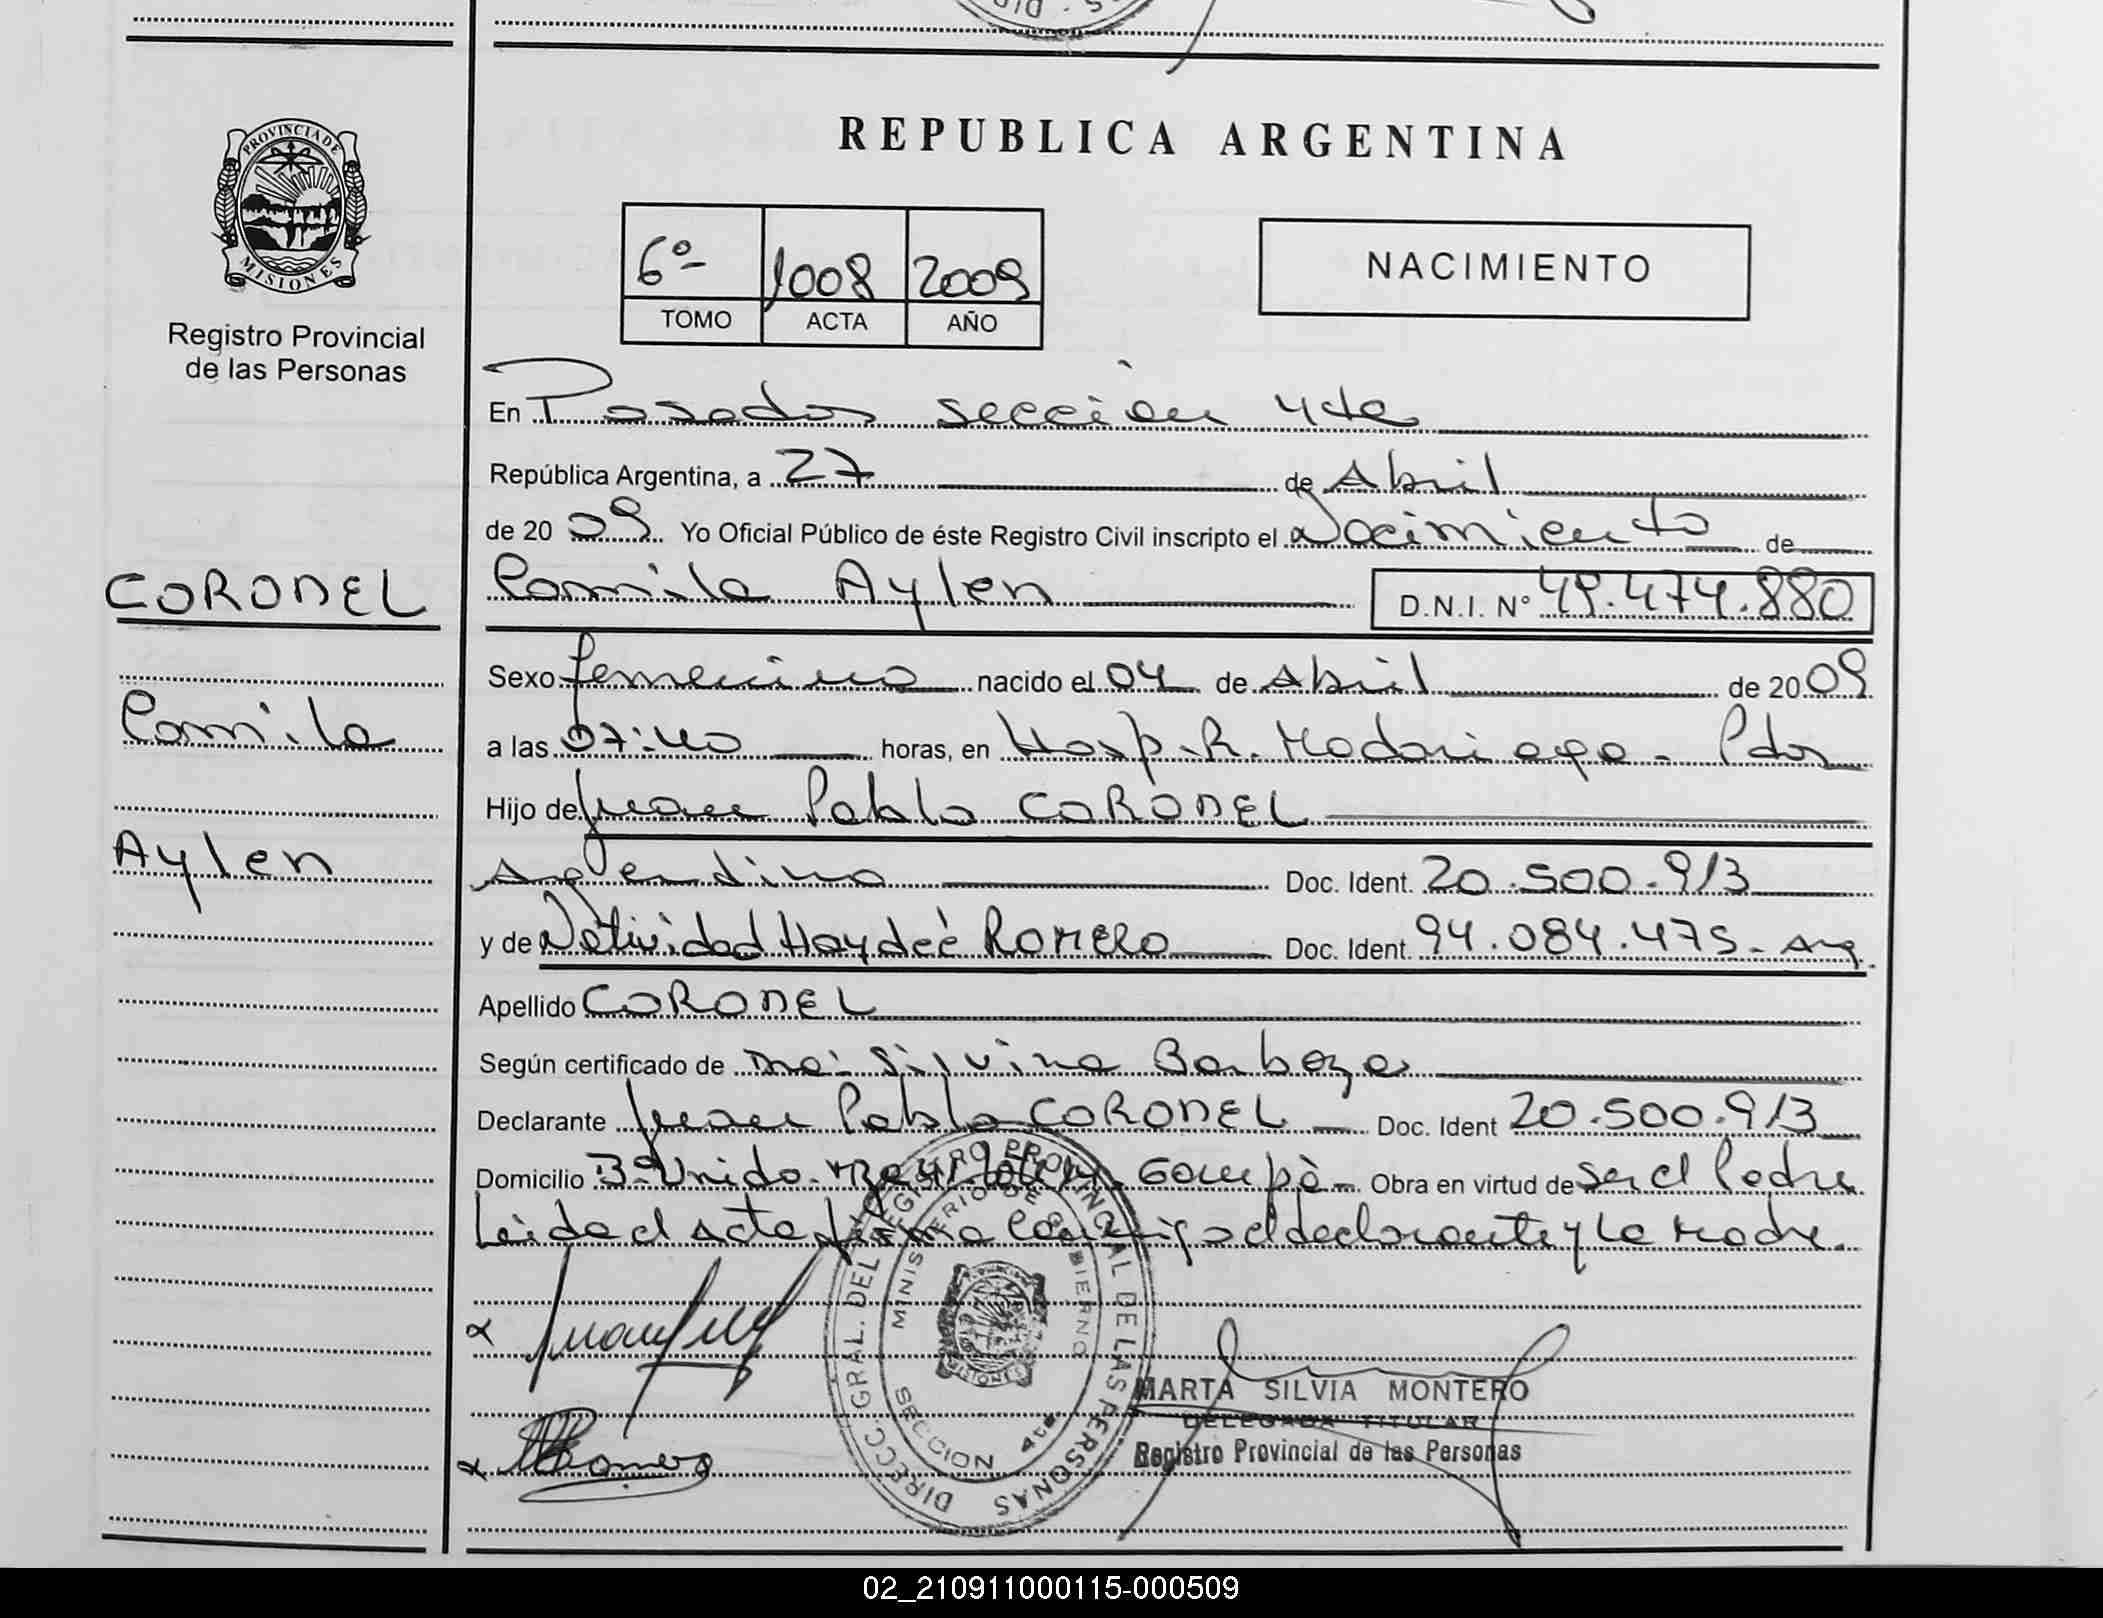 REPUBLICA ARGENTINA
PROVINCIA DE MISIONES
Registro Provincial
de las Personas
6º 1008 2009
TOMO ACTA AÑO
NACIMIENTO
En Posadas sección 4ta
República Argentina, a 27 de Abril
de 2009. Yo Oficial Público de éste Registro Civil inscripto el Nacimiento de
Camila Aylen D.N.I. Nº 49.474.880
CORONEL
Camila
Aylen
Sexo femenino nacido el 04 de Abril de 2009
a las 07:40 horas, en Hosp. R. Madariaga - Pdas
Hijo de Juan Pablo CORONEL
Argentino Doc. Ident. 20.500.913
y de Natividad Haydeé ROMERO Doc. Ident. 94.084.475 - Arg.
Apellido CORONEL
Según certificado de Ma. Silvina Barboza
Declarante Juan Pablo CORONEL Doc. Ident 20.500.913
Domicilio Bº Unido Garupá - Obra en virtud de ser el Padre
Leida el acta firma conmigo el declarante y la madre.
DIRECC. GRAL. DEL REGISTRO PROVINCIAL DE LAS PERSONAS
MINISTERIO DE GOBIERNO
SECCION 4ta
MARTA SILVIA MONTERO
DELEGADA TITULAR
Registro Provincial de las Personas
02_210911000115-000509